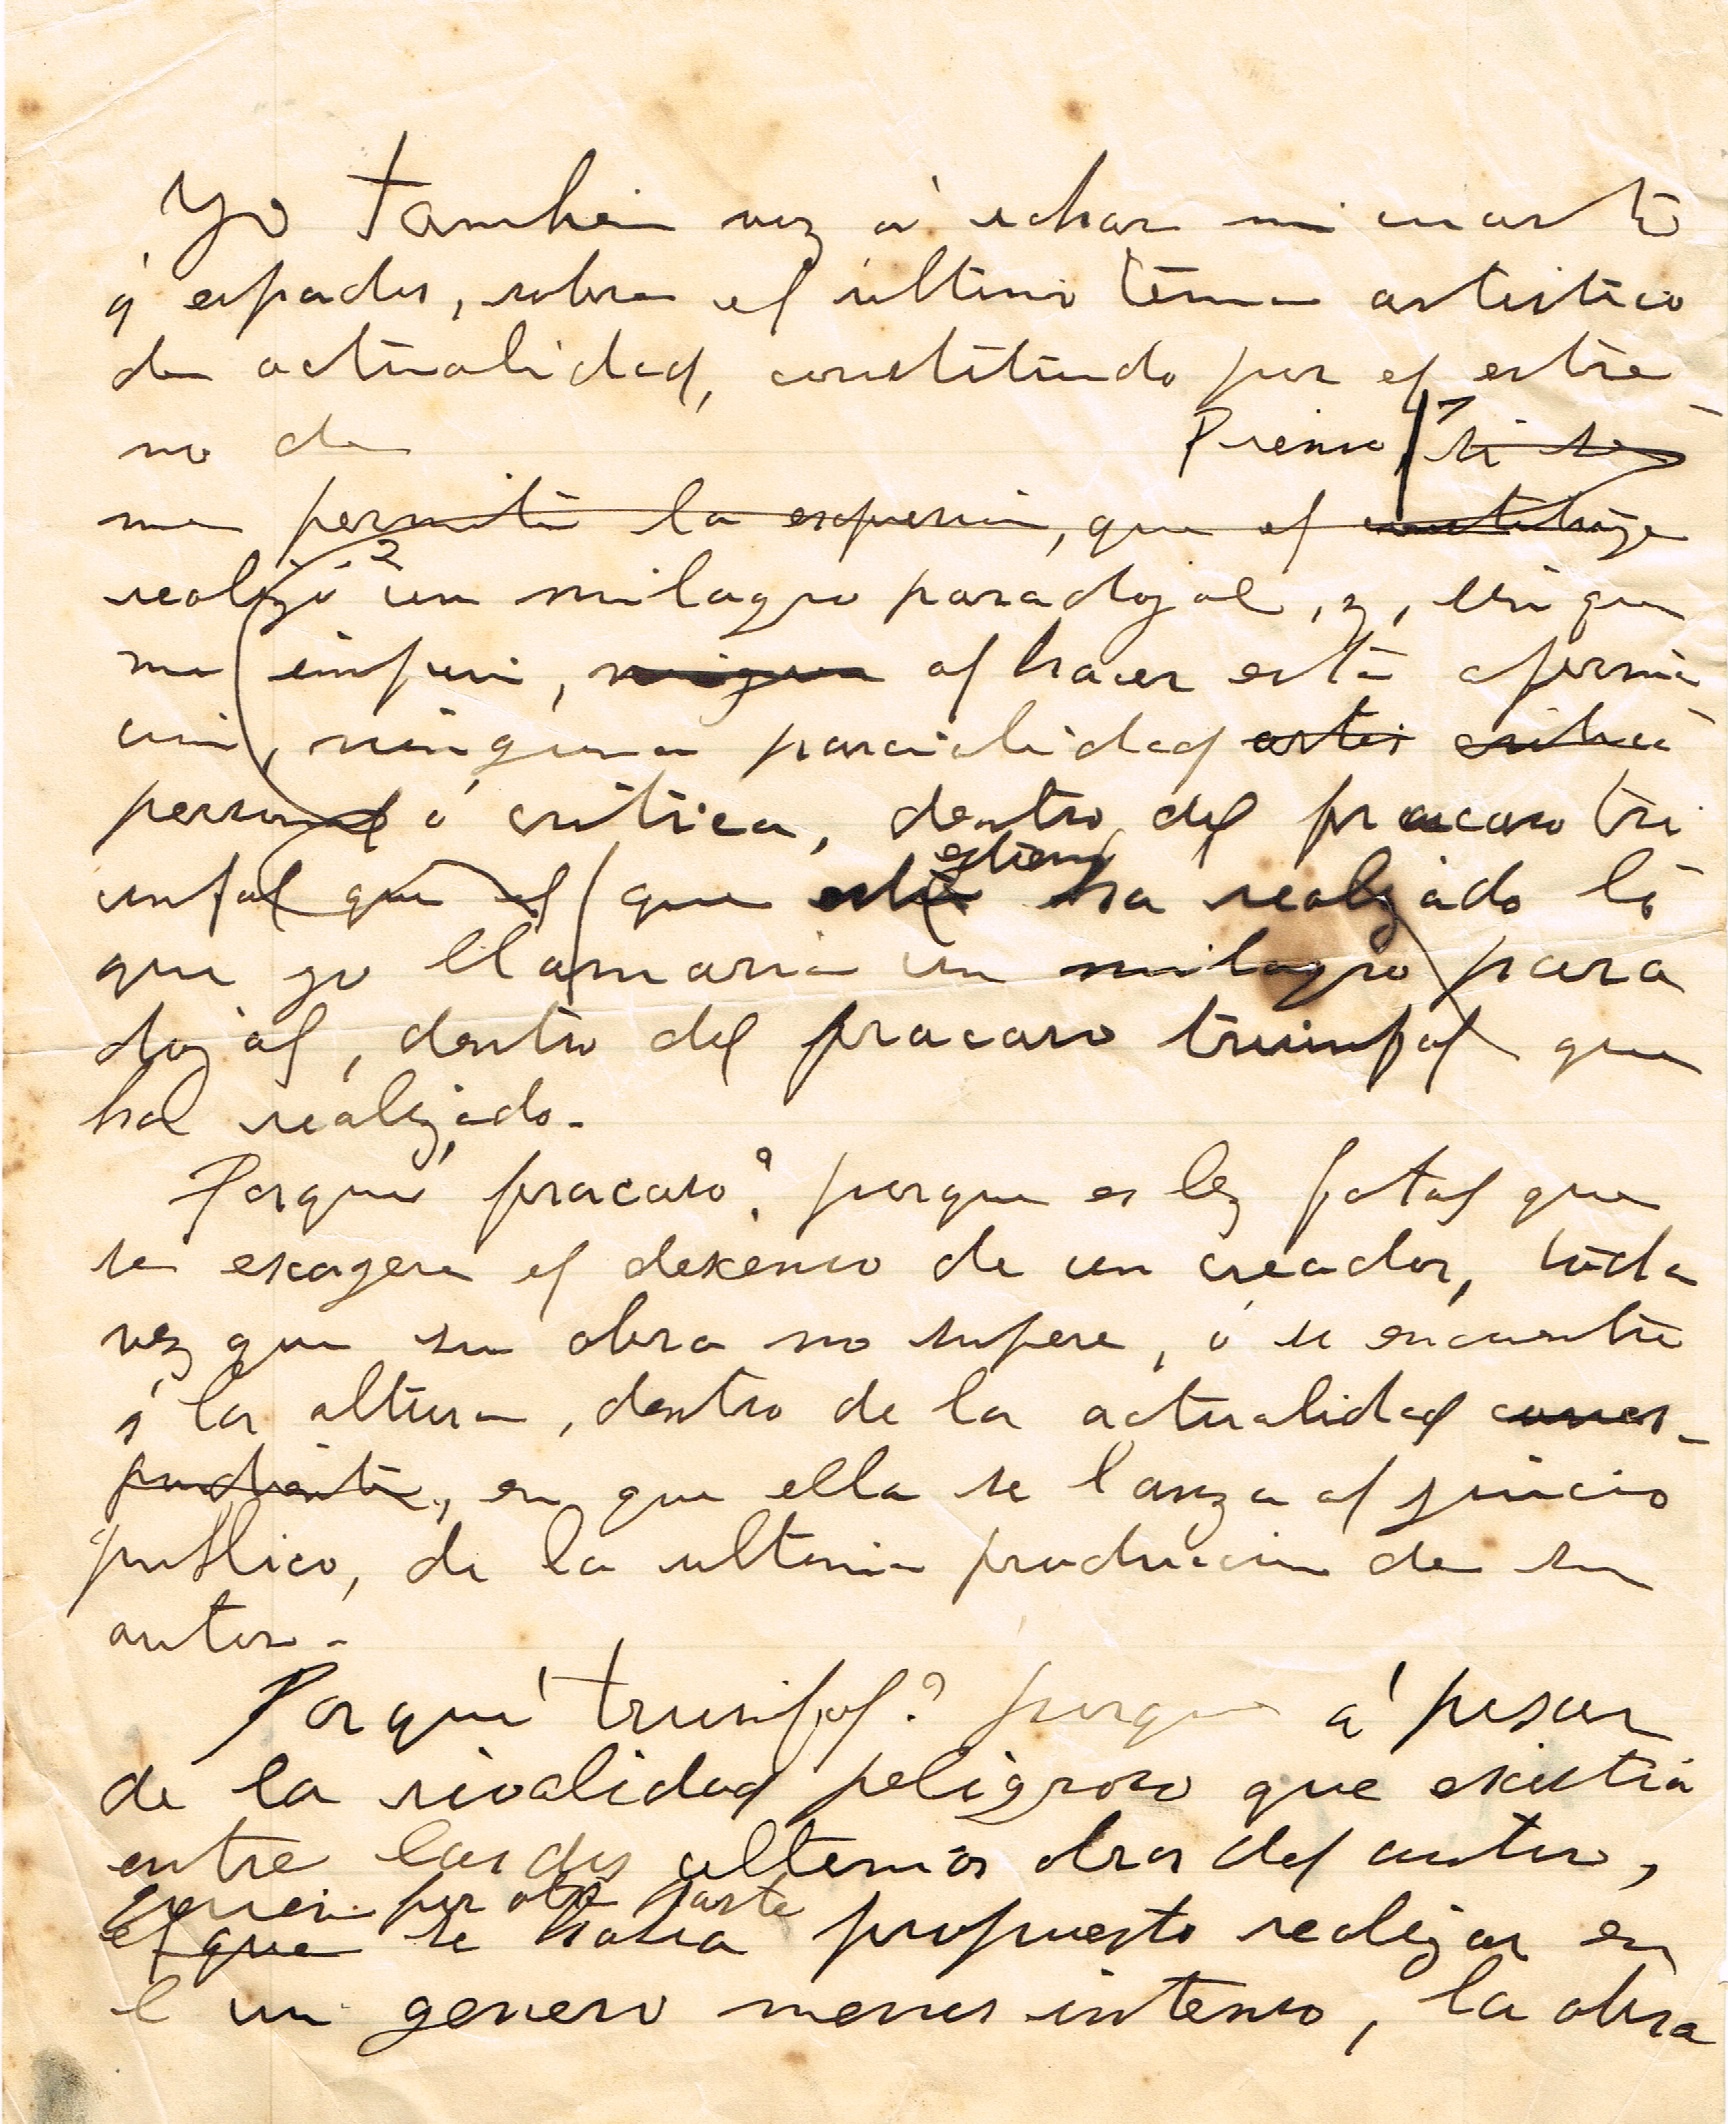 Yo también voy á echar mi cuarto
á espadas, sobre el último tema artístico
de actualidad, constituido por el estre
no de Pienso, si se
me permite la espresión, que el
realizó un milagro paradojal, y, sin que
me, al hacer esta afirma
ción, ninguna parcialidad artis critica
personal ó crítica, dentro del fracaso tri
unfal que el que ha realizado lo
que yo llamaria un milagro para
dojal, dentro del fracaso triunfal que
ha realizado.
Porqué fracaso? porque es ley fatal que
se exagere el descenso de un creador, toda
vez que su obra no supere, ó se encuentre
á la altura, dentro de la actualidad corres-
pondiente, en que ella se lanza al juicio
publico, de la ultima produccion de su
autor.-
Porqué triunfal? porque á pesar
de la rivalidad peligrosa que existia
entre las dos ultimas obras del autor,
quien por otra parte
el que se habia propuesto realizar en
el un genero menos intenso, la obra